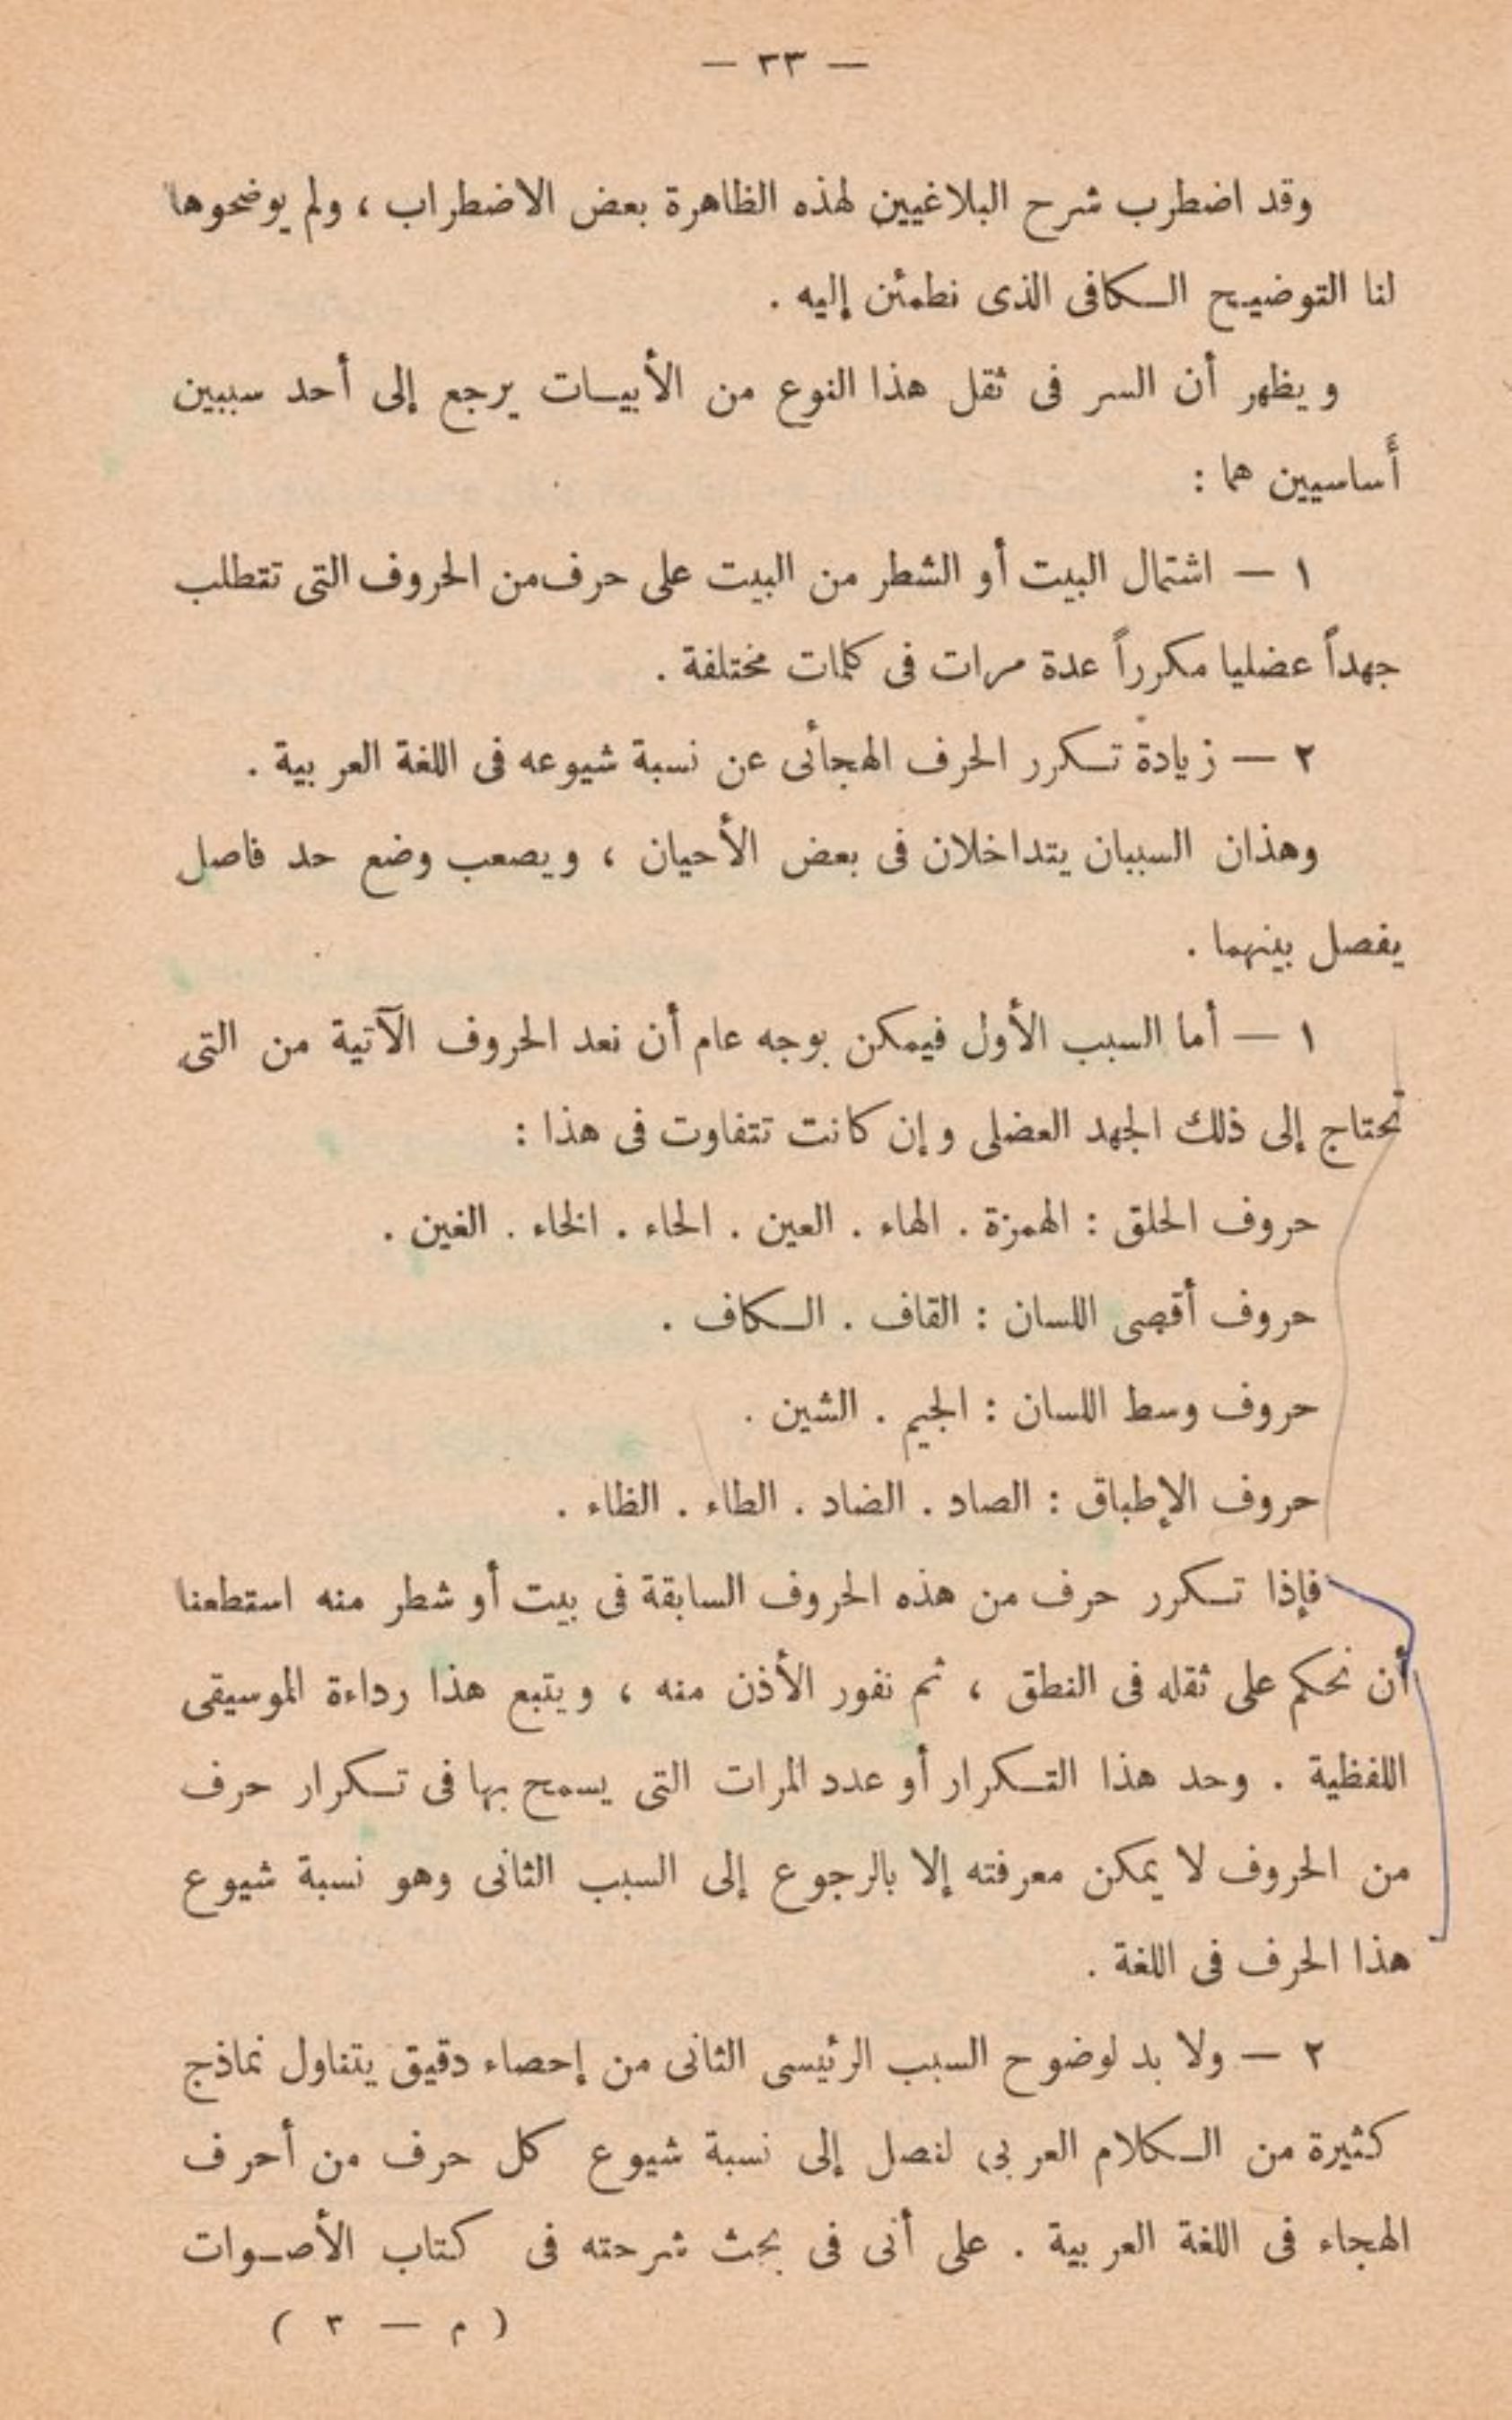 — ٣٣ —
وقد اضطرب شرح البلاغيين لهذه الظاهرة بعض الاضطراب ، ولم يوضحوها
لنا التوضيح الكافى الذى نطمئن إليه .
ويظهر أن السر فى ثقل هذا النوع من الأبيات يرجع إلى أحد سببين
أساسيين هما :
١ — اشتمال البيت أو الشطر من البيت على حرف من الحروف التى تتطلب
جهداً عضليا مكرراً عدة مرات فى كلمات مختلفة .
٢ — زيادة تكرر الحرف الهجائى عن نسبة شيوعه فى اللغة العربية .
وهذان السببان يتداخلان فى بعض الأحيان ، ويصعب وضع حد فاصل
يفصل بينهما .
١ — أما السبب الأول فيمكن بوجه عام أن نعد الحروف الآتية من التى
تحتاج إلى ذلك الجهد العضلى وإن كانت تتفاوت فى هذا :
حروف الحلق : الهمزة . الهاء . العين . الحاء . الخاء . الغين .
حروف أقصى اللسان : القاف . الكاف .
حروف وسط اللسان : الجيم . الشين .
حروف الإطباق : الصاد . الضاد . الطاء . الظاء .
فإذا تكرر حرف من هذه الحروف السابقة فى بيت أو شطر منه استطعنا
أن نحكم على ثقله فى النطق ، ثم نفور الأذن منه ، ويتبع هذا رداءة الموسيقى
اللفظية . وحد هذا التكرار أو عدد المرات التى يسمح بها فى تكرار حرف
من الحروف لا يمكن معرفته إلا بالرجوع إلى السبب الثانى وهو نسبة شيوع
هذا الحرف فى اللغة .
٢ — ولا بد لوضوح السبب الرئيسى الثانى من إحصاء دقيق يتناول نماذج
كثيرة من الكلام العربى لنصل إلى نسبة شيوع كل حرف من أحرف
الهجاء فى اللغة العربية . على أنى فى بحث شرحته فى كتاب الأصوات
( م — ٣ )